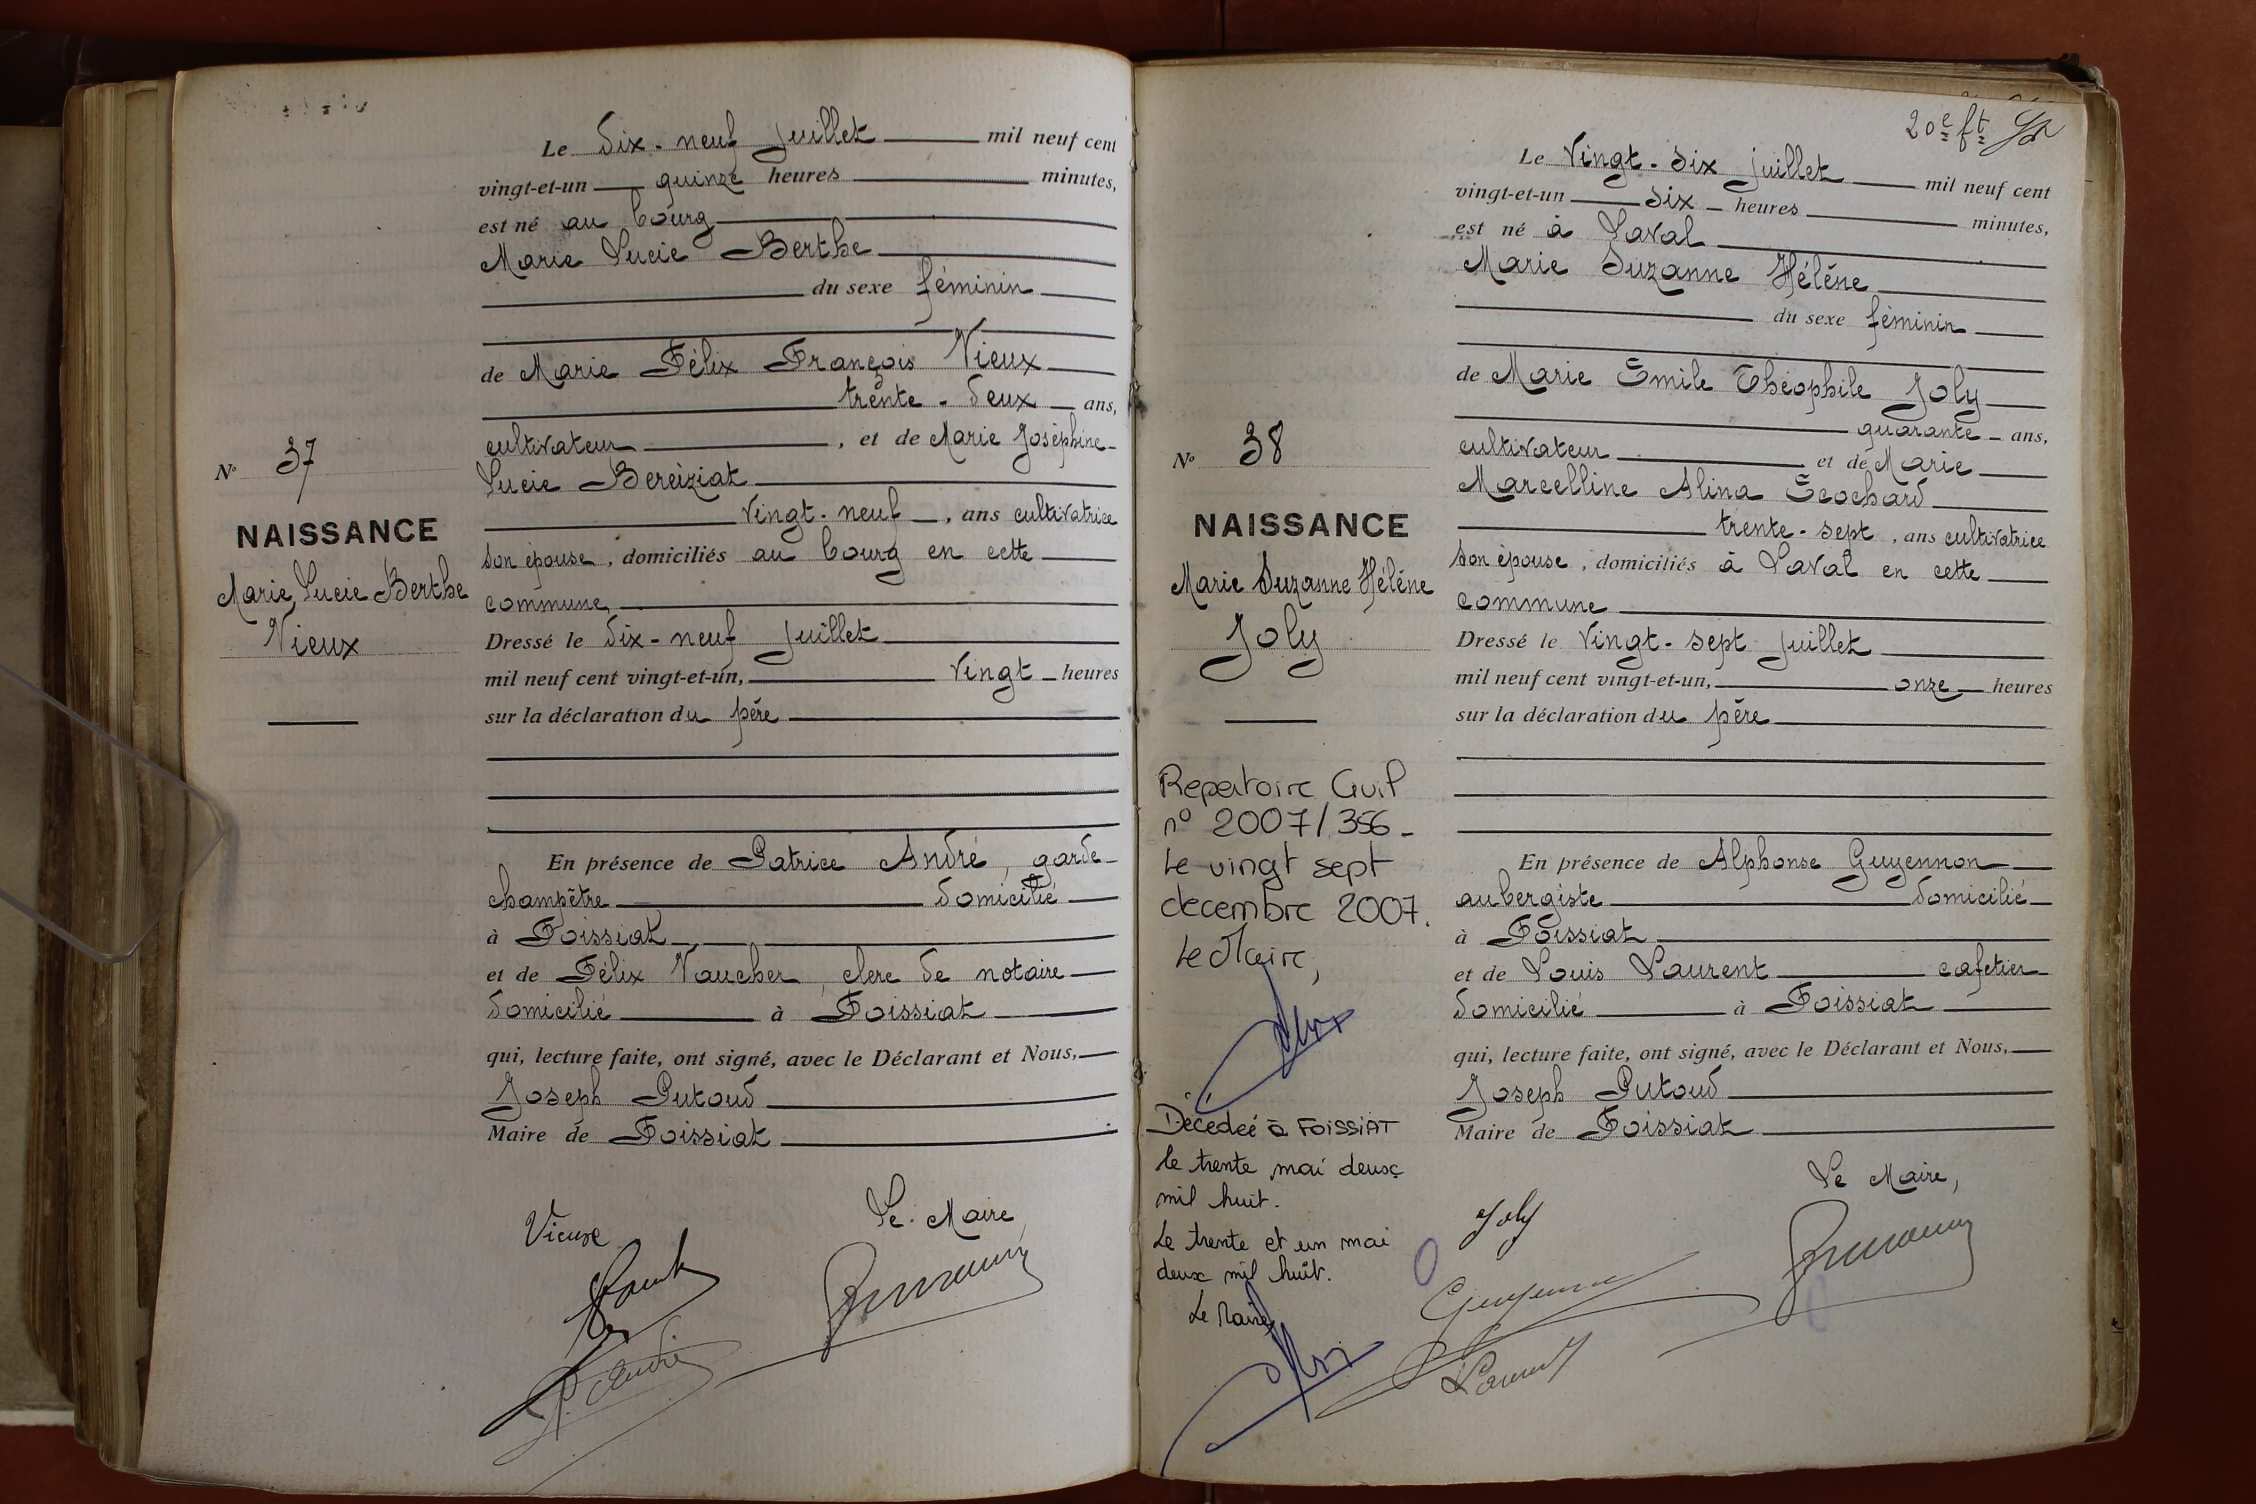 Le dix-neuf juillet mil neuf cent
vingt-et-un quinze heures minutes,
est né au bourg
Marie Lucie Berthe
du sexe féminin
de Marie Félix François Vieux
trente-deux ans,
cultivateur, et de Marie Joséphine
Lucie Bereiziat
vingt-neuf, ans cultivatrice
son épouse, domiciliés au bourg en cette
commune
Dressé le dix-neuf juillet
mil neuf cent vingt-et-un, vingt heures
sur la déclaration du père
En présence de Patrice André, garde-
champêtre domicilié
à Foissiat
et de Félix Vaucher, clerc de notaire
domicilié à Foissiat
qui, lecture faite, ont signé, avec le Déclarant et Nous,
Joseph Putoud
Maire de Foissiat
Le Maire
Vieux
No 37
NAISSANCE
Marie Lucie Berthe
Vieux
20e ft
Le vingt-six juillet mil neuf cent
vingt-et-un six heures minutes,
est né à Laval
Marie Suzanne Hélène
du sexe féminin
de Marie Emile Théophile Joly
quarante ans,
cultivateur et de Marie
Marcelline Alina Ecochard
trente-sept, ans cultivatrice
son épouse, domiciliés à Laval en cette
commune
Dressé le vingt-sept juillet
mil neuf cent vingt-et-un, onze heures
sur la déclaration du père
En présence de Alphonse Guyennon
aubergiste domicilié
à Foissiat
et de Louis Laurent cafetier
domicilié à Foissiat
qui, lecture faite, ont signé, avec le Déclarant et Nous,
Joseph Putoud
Maire de Foissiat
Le Maire,
Joly
Guyennon
Laurent
No 38
NAISSANCE
Marie Suzanne Hélène
Joly
Repertoire Civil
n° 2007/356-
Le vingt sept
decembre 2007.
Le Maire,
Décédée à FOISSIAT
le trente mai deux
mil huit.
Le trente et un mai
deux mil huit.
Le Maire